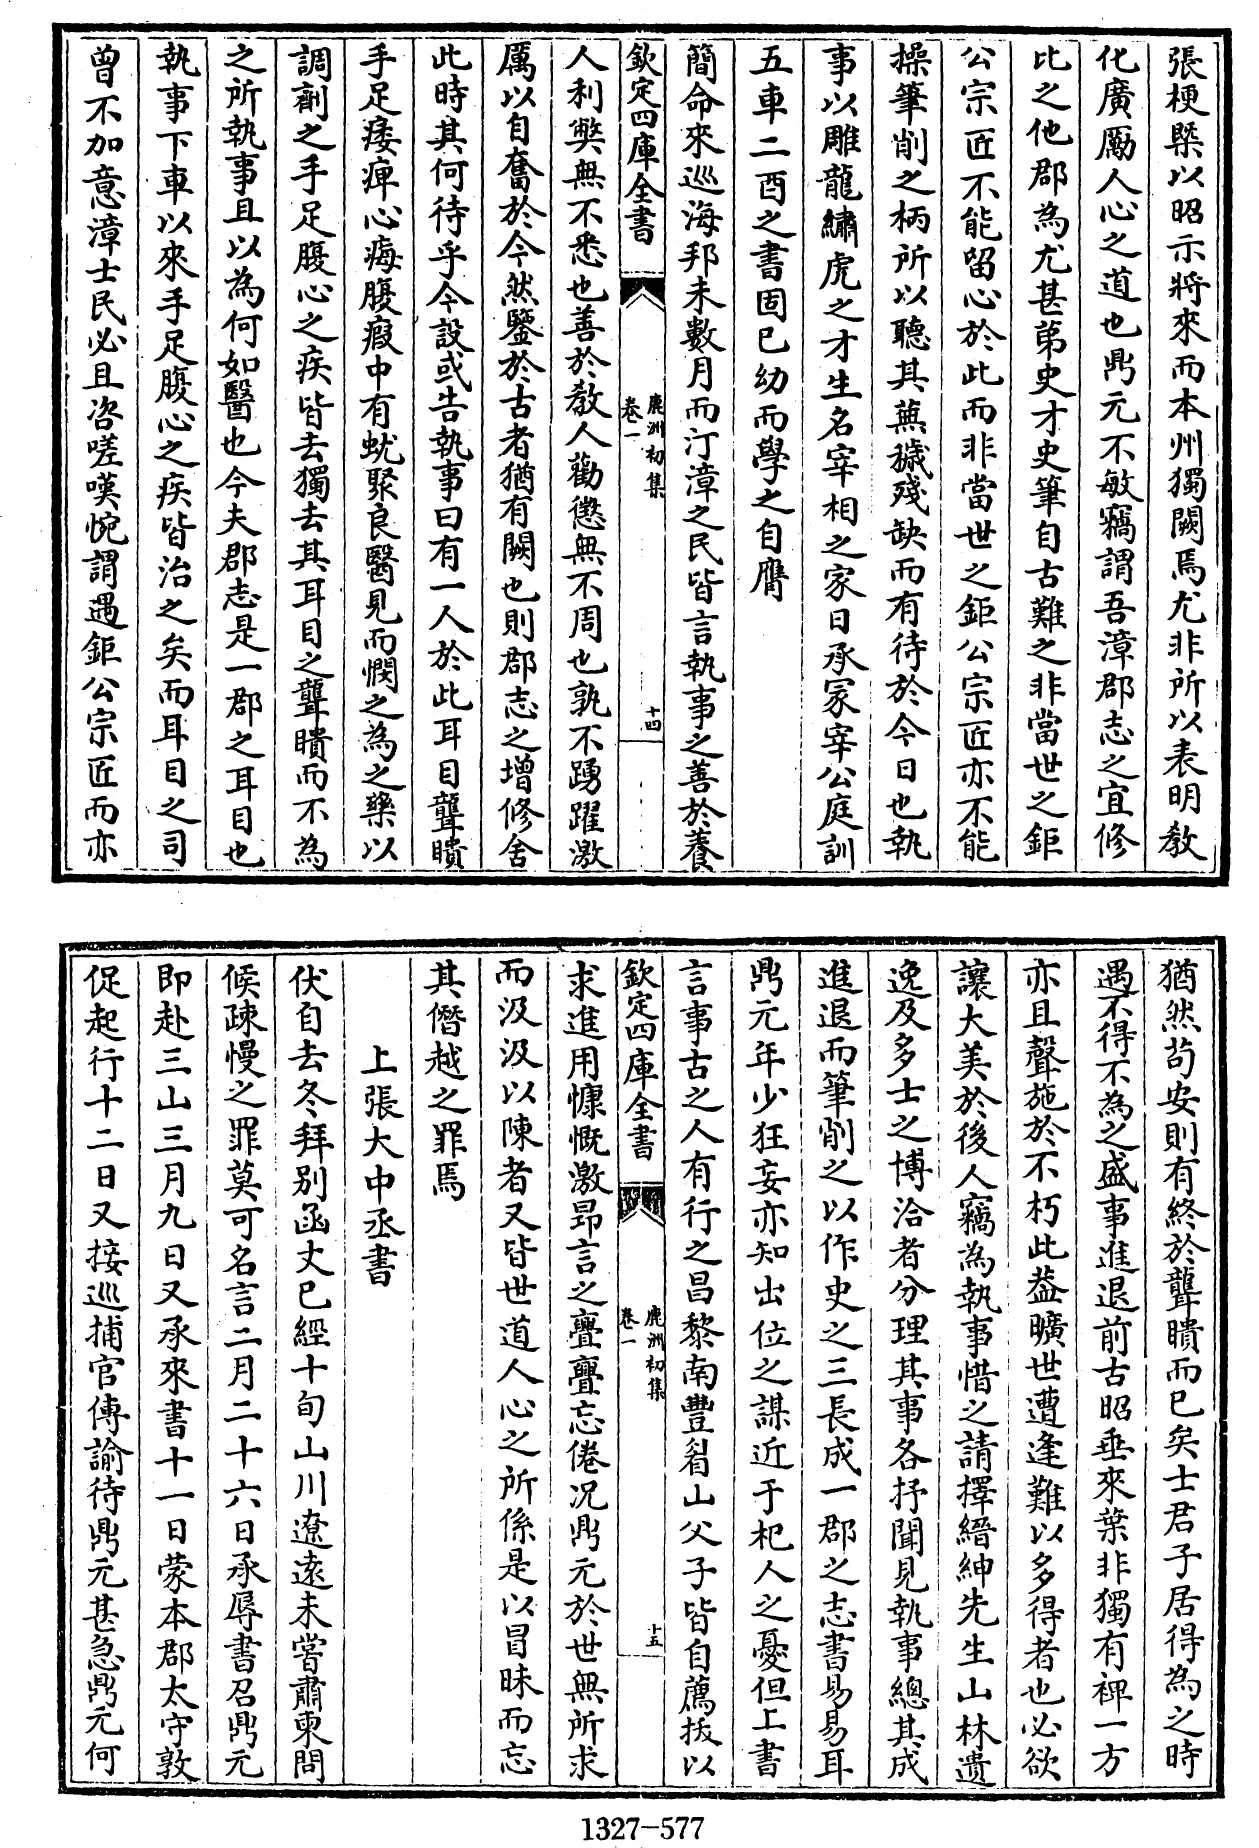 張梗槩以昭示將來而本州獨闕焉尤非所以表明教
化廣勵人心之道也鼎元不敏竊謂吾漳郡志之宜修
比之他郡為尤甚第史才史筆自古難之非當世之鉅
公宗匠不能留心於此而非當世之鉅公宗匠亦不能
操筆削之柄所以聽其蕪穢殘缺而有待於今日也執
事以雕龍繡虎之才生名宰相之家日承冡宰公庭訓
五車二酉之書固已幼而學之自膺
簡命來巡海邦未數月而汀漳之民皆言執事之善於養
欽定四庫全書
鹿洲初集
卷一
十四
人利弊無不悉也善於教人勸懲無不周也孰不踴躍激
厲以自奮於今然鑒於古者猶有闕也則郡志之增修舍
此時其何待乎今設或告執事曰有一人於此耳目聾瞶
手足痿痺心痗腹瘕中有蚘聚良醫見而憫之為之藥以
調劑之手足腹心之疾皆去獨去其耳目之聾瞶而不為
之所執事且以為何如醫也今夫郡志是一郡之耳目也
執事下車以來手足腹心之疾皆治之矣而耳目之司
曾不加意漳士民必且咨嗟嘆惋謂遇鉅公宗匠而亦
猶然苟安則有終於聾瞶而已矣士君子居得為之時
遇不得不為之盛事進退前古昭垂來葉非獨有裨一方
亦且聲施於不朽此葢曠世遭逢難以多得者也必欲
讓大美於後人竊為執事惜之請擇縉紳先生山林遺
逸及多士之博洽者分理其事各抒聞見執事總其成
進退而筆削之以作史之三長成一郡之志書易易耳
鼎元年少狂妄亦知出位之謀近于杞人之憂但上書
言事古之人有行之昌黎南豐眉山父子皆自薦拔以
欽定四庫全書
鹿洲初集
卷一
十五
求進用慷慨激昂言之亹亹忘倦况鼎元於世無所求
而汲汲以陳者又皆世道人心之所係是以冒昧而忘
其僭越之罪焉
上張大中丞書
伏自去冬拜别函丈已經十旬山川遼遠未嘗肅柬問
候疎慢之罪莫可名言二月二十六日承辱書召鼎元
即赴三山三月九日又承來書十一日蒙本郡太守敦
促起行十二日又接巡捕官傳諭待鼎元甚急鼎元何
1327-577